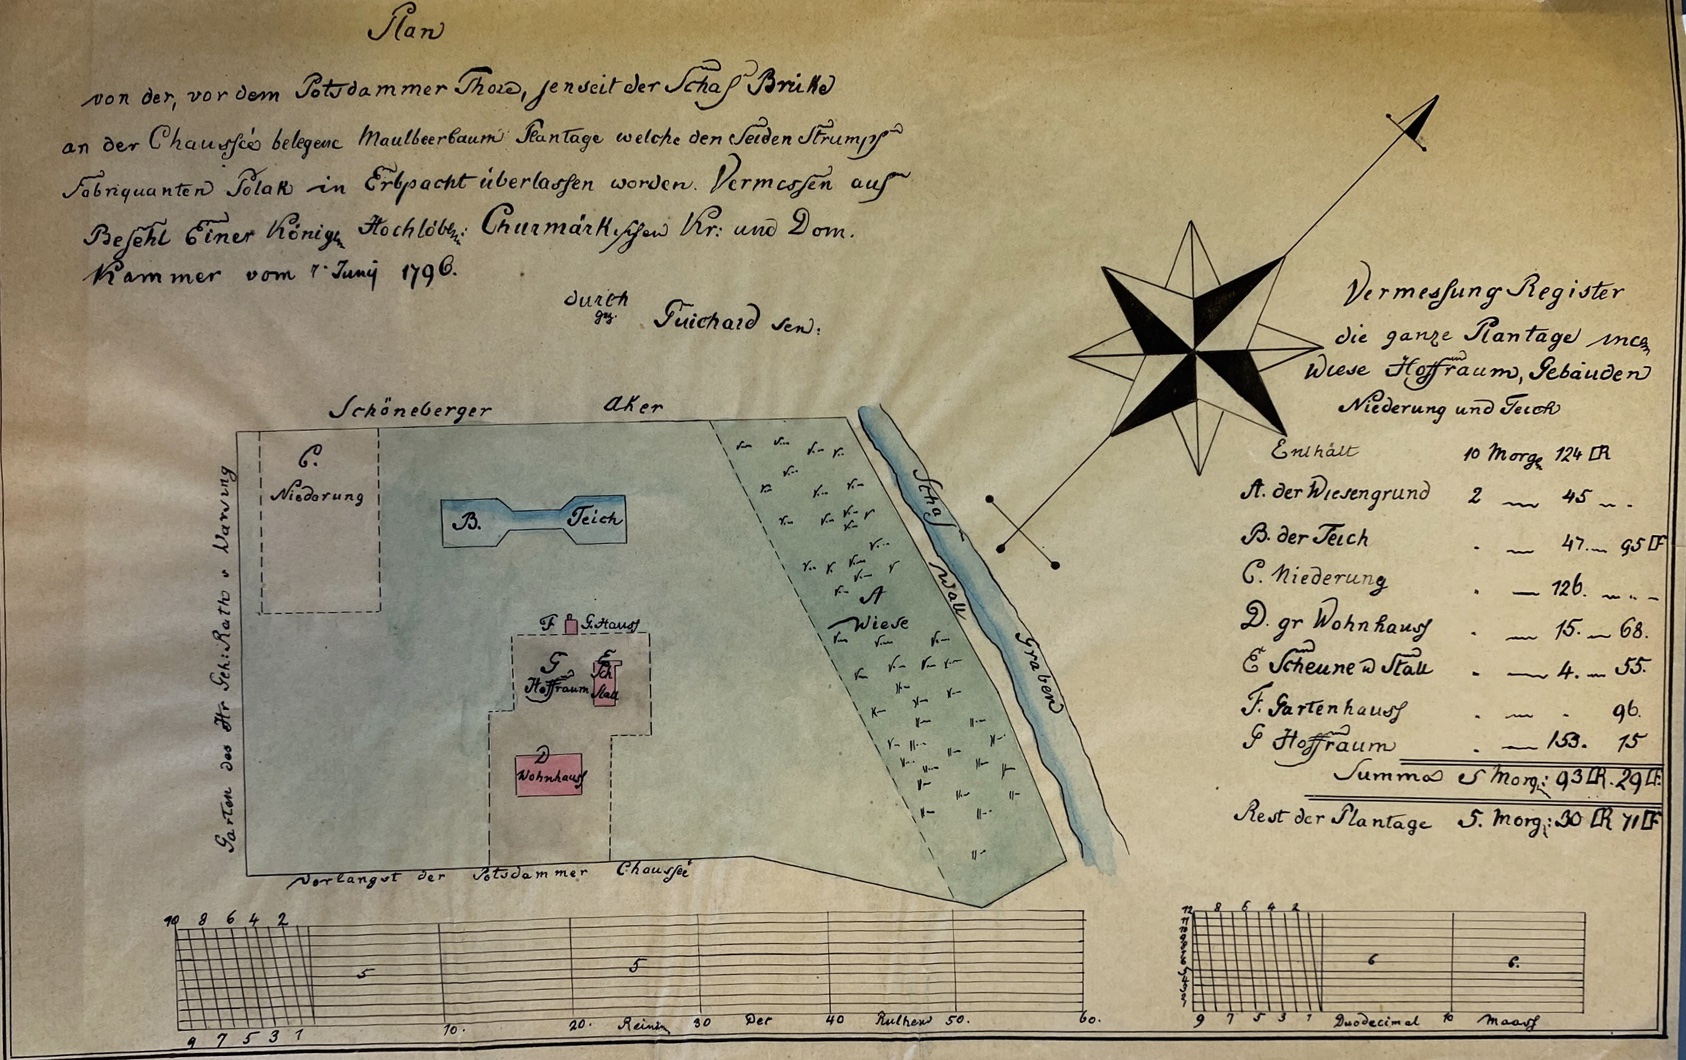 Plan
von der, vor dem Potsdammer Thore, jenseit der Schaf Brükke
an der Chausseé belegene Maulbeerbaum Plantage welche den Seiden Strumpf
Fabriquanten Polak in Erbpacht überlassen worden. Vermessen auf
Befehl Einer Königl. Hochlöbl: Churmärkischen Kr: und Dom.
Kammer vom 7t Junij 1796.
durch
gez. Guichard sen:
Vermessung Register
die ganze Plantage incl.
Wiese Hoffraum, Gebäuden
Niederung und Teich
Enthält 10 Morg. 124 □R
A. der Wiesengrund 2 — 45 — .
B. der Teich . — 47. — 95 □F
C. Niederung . — 126. — . —
D. gr Wohnhauss . — 15. — 68.
E Scheune u Stall . — 4. — 55.
F. Gartenhauss . — . 96.
G Hoffraum . — 153. 15
Summa 5 Morg: 93 □R. 29 □F.
Rest der Plantage 5. Morg: 30 □R 71 □F
Schöneberger Aker
C.
Niederung
B. Teich
Garten des Hr. Geh: Rath v Warsing
F G. Hauss
G
Hoffraum
E
Sch
Stall
D
Wohnhauss
A
Wiese
Schaf Graben
Wall
Vorlangst der Potsdammer Chausseé
10 8 6 4 2
5 5
9 7 5 3 1 10. 20. Reinl. 30 Der 40 Ruthen 50. 60.
12 8 6 4 2
11
10
9
8
7
6
5
4
3
2
1
6 6.
9 7 5 3 1 Duodecimal 10 Maass